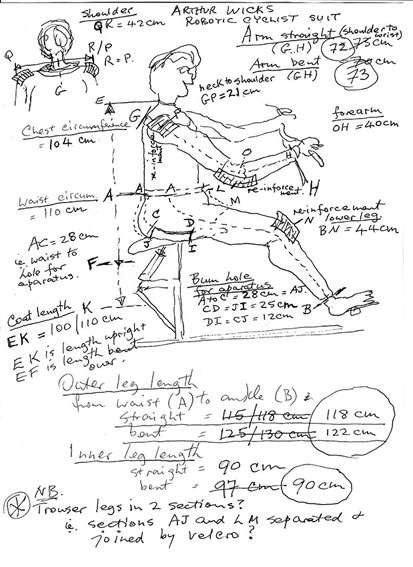 Shoulder
QR = 42cm
ARTHUR WICKS
ROBOTIC CYCLIST SUIT
Q
R/P
R = P.
G
Arm straight (shoulder to wrist)
(G.H) 72 75 cm
Arm bent 70 cm
(GH) 73
neck to shoulder
GP = 21cm
E
G
forearm
OH = 40cm
Chest circumference
= 104 cm
re-inforcement
O
H
Waist circum.
= 110 cm
A
A
A
L
M
re-inforcement
H
reinforcement
N lower leg
BN = 44cm
AC = 28cm
i.e. waist to
hole for
apparatus.
C
D
J
I
F
Bum hole
for apparatus
A to C = 28cm = AJ.
CD = JI = 25cm
DI = CJ = 12cm
B
Coat length
EK = 100/110cm
K
EK is length upright
EF is length bent
over.
Outer leg length
from waist (A) to ankle (B) is
straight = 115/118 cm 118 cm
bent = 125/130 cm 122 cm
Inner leg length
straight = 90 cm
bent = 97 cm 90cm
NB.
Trouser legs in 2 sections?
i.e. sections AJ and LM separated &
joined by velcro?